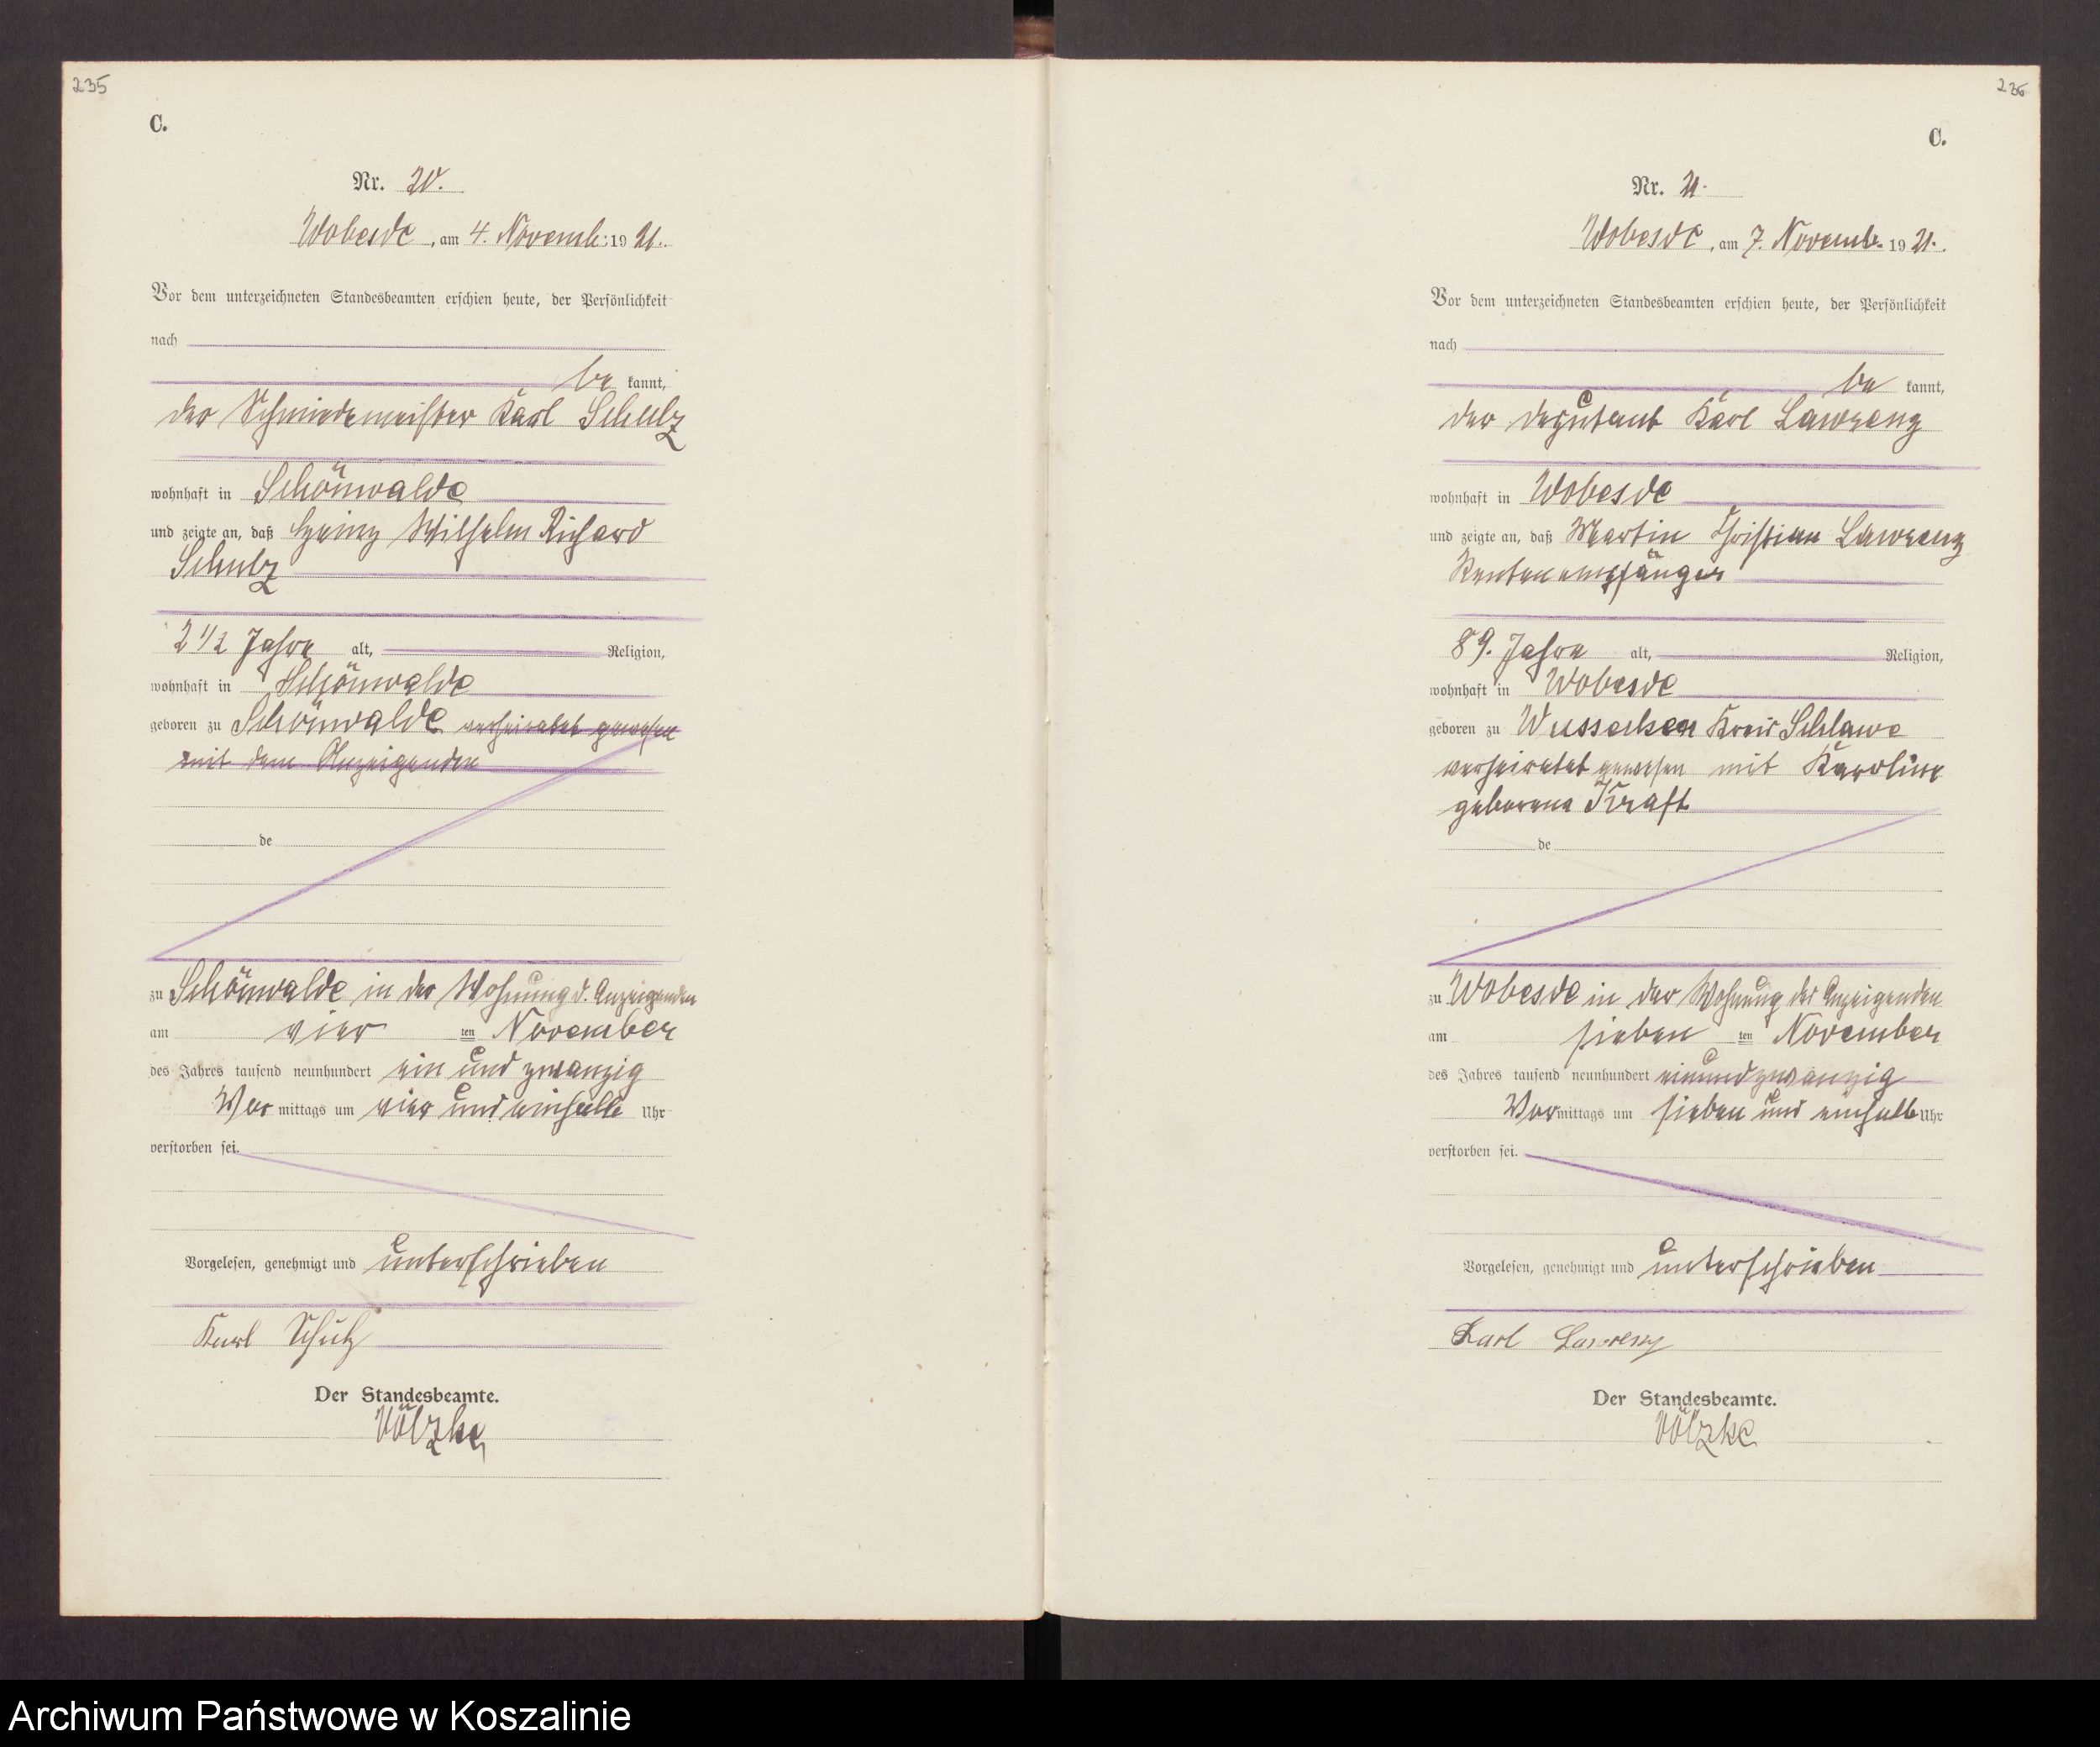 235
C.
Nr. 20.
Wobesde, am 4. Novemb. 1921.
Vor dem unterzeichneten Standesbeamten erschien heute, der Persönlichkeit
nach
be kannt,
der Schmiedemeister Karl Schulz
wohnhaft in Schönwalde
und zeigte an, daß Heinz Wilhelm Richard
Schulz
2 1/2 Jahre alt, Religion,
wohnhaft in Schönwalde
geboren zu Schönwalde verheiratet gewesen
mit dem Anzeigenden
de
zu Schönwalde in der Wohnung d. Anzeigenden
am vier ten November
des Jahres tausend neunhundert ein und zwanzig
Vor mittags um vier und einhalb Uhr
verstorben sei.
Vorgelesen, genehmigt und unterschrieben
Karl Schulz
Der Standesbeamte.
Völzke
236
C.
Nr. 21.
Wobesde, am 7. Novemb. 1921.
Vor dem unterzeichneten Standesbeamten erschien heute, der Persönlichkeit
nach
be kannt,
der Deputant Karl Lawrenz
wohnhaft in Wobesde
und zeigte an, daß Martin Christian Lawrenz
Rentenempfänger
89. Jahre alt, Religion,
wohnhaft in Wobesde
geboren zu Wusseken Kreis Schlawe
verheiratet gewesen mit Karoline
geborene Kraft
de
zu Wobesde in der Wohnung des Anzeigenden
am sieben ten November
des Jahres tausend neunhundert einundzwanzig
Vormittags um sieben und einhalb Uhr
verstorben sei.
Vorgelesen, genehmigt und unterschrieben
Karl Lawrenz
Der Standesbeamte.
Völzke
Archiwum Państwowe w Koszalinie